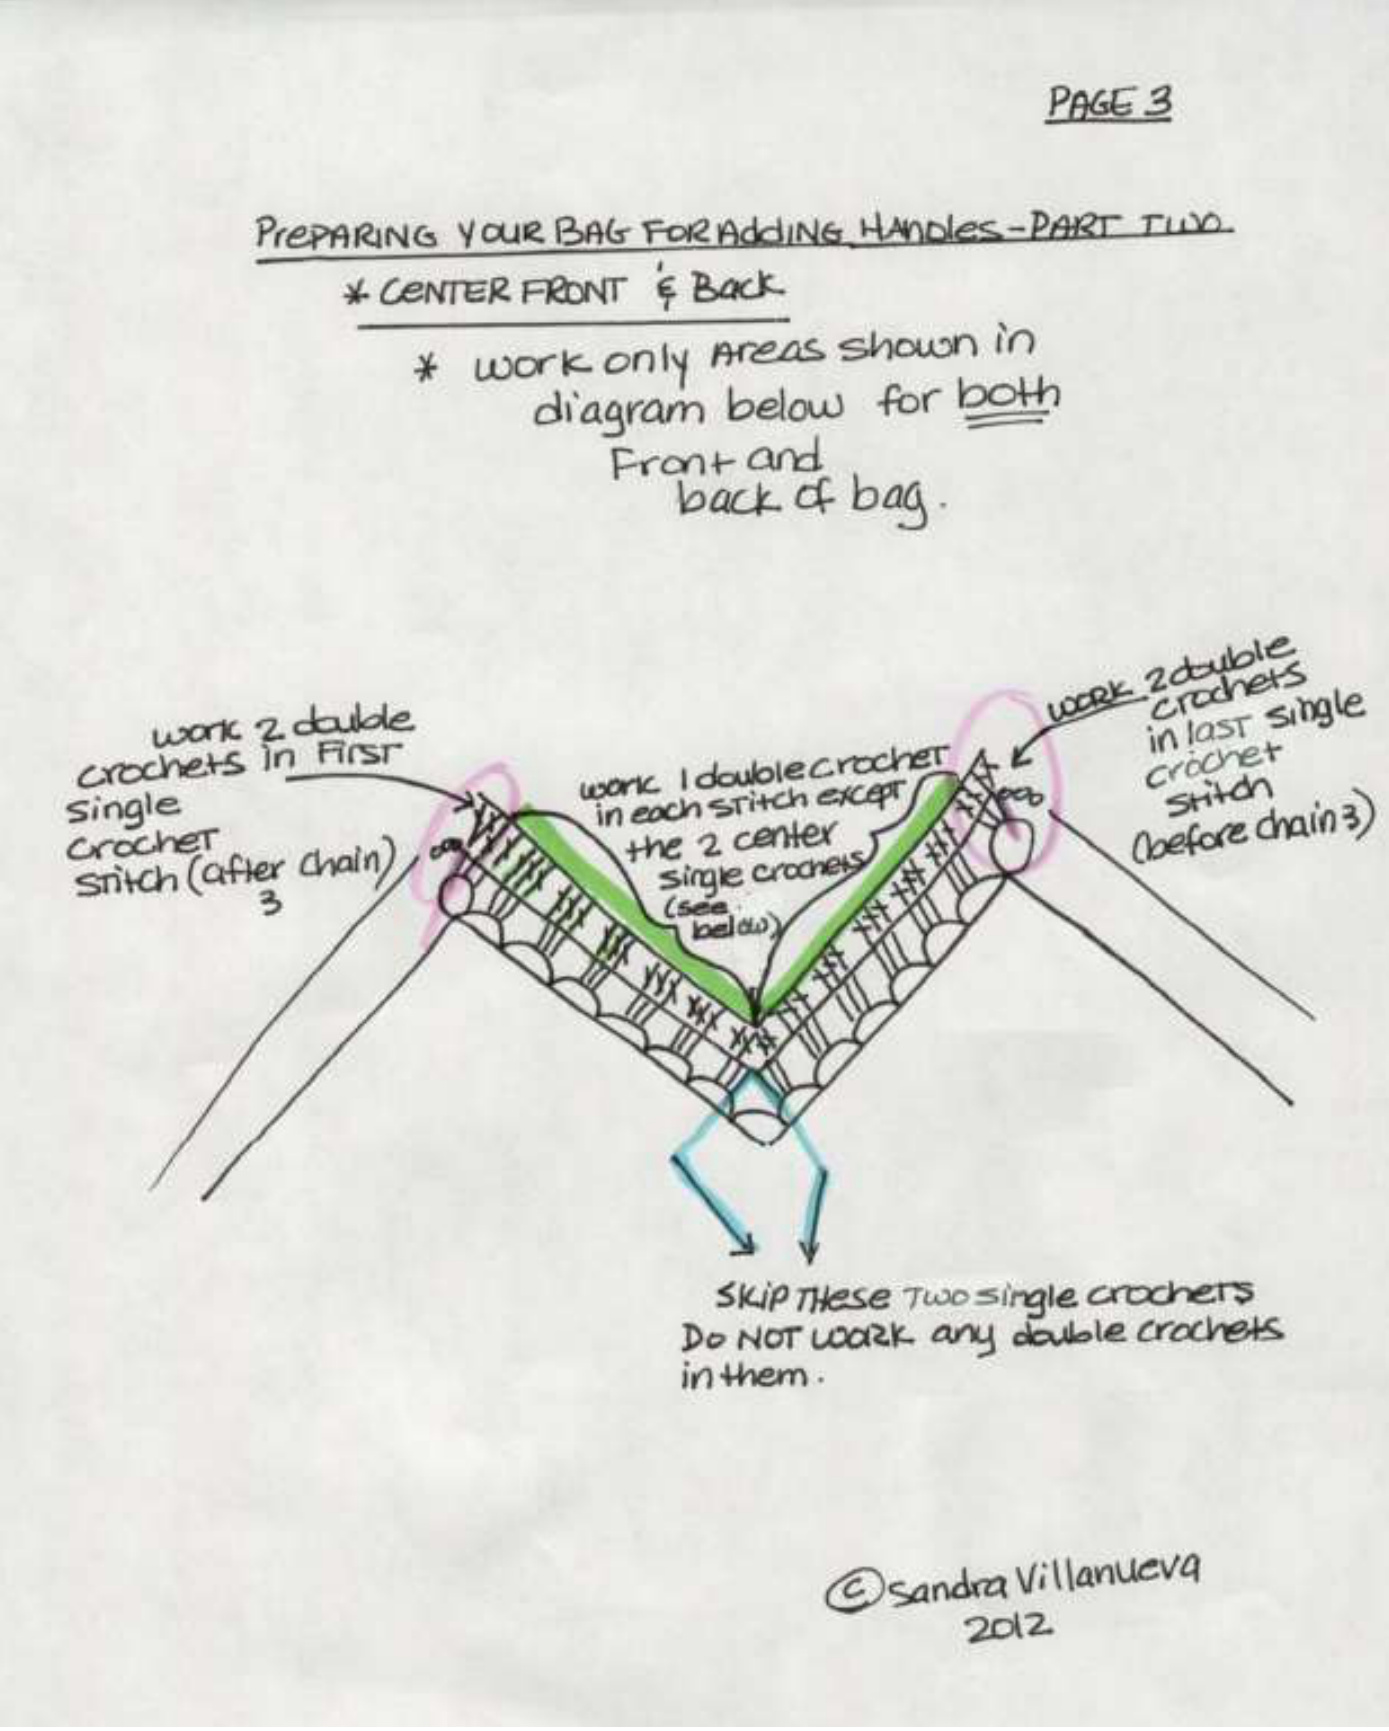 PAGE 3
PREPARING YOUR BAG FOR AddING HANDLES - PART TWO
* CENTER FRONT & Back
* work only AREAS shown in
diagram below for both
Front and
back of bag.
work 2 double
crochets in First
single
crochet
stitch (after chain)
3
work 1 double crochet
in each stitch except
the 2 center
single crochets
(see
below)
WORK 2 double
crochets
in last single
crochet
stitch
(before chain 3)
SKIP THESE TWO single crochets
Do NOT WORK any double crochets
in them.
© Sandra Villanueva
2012